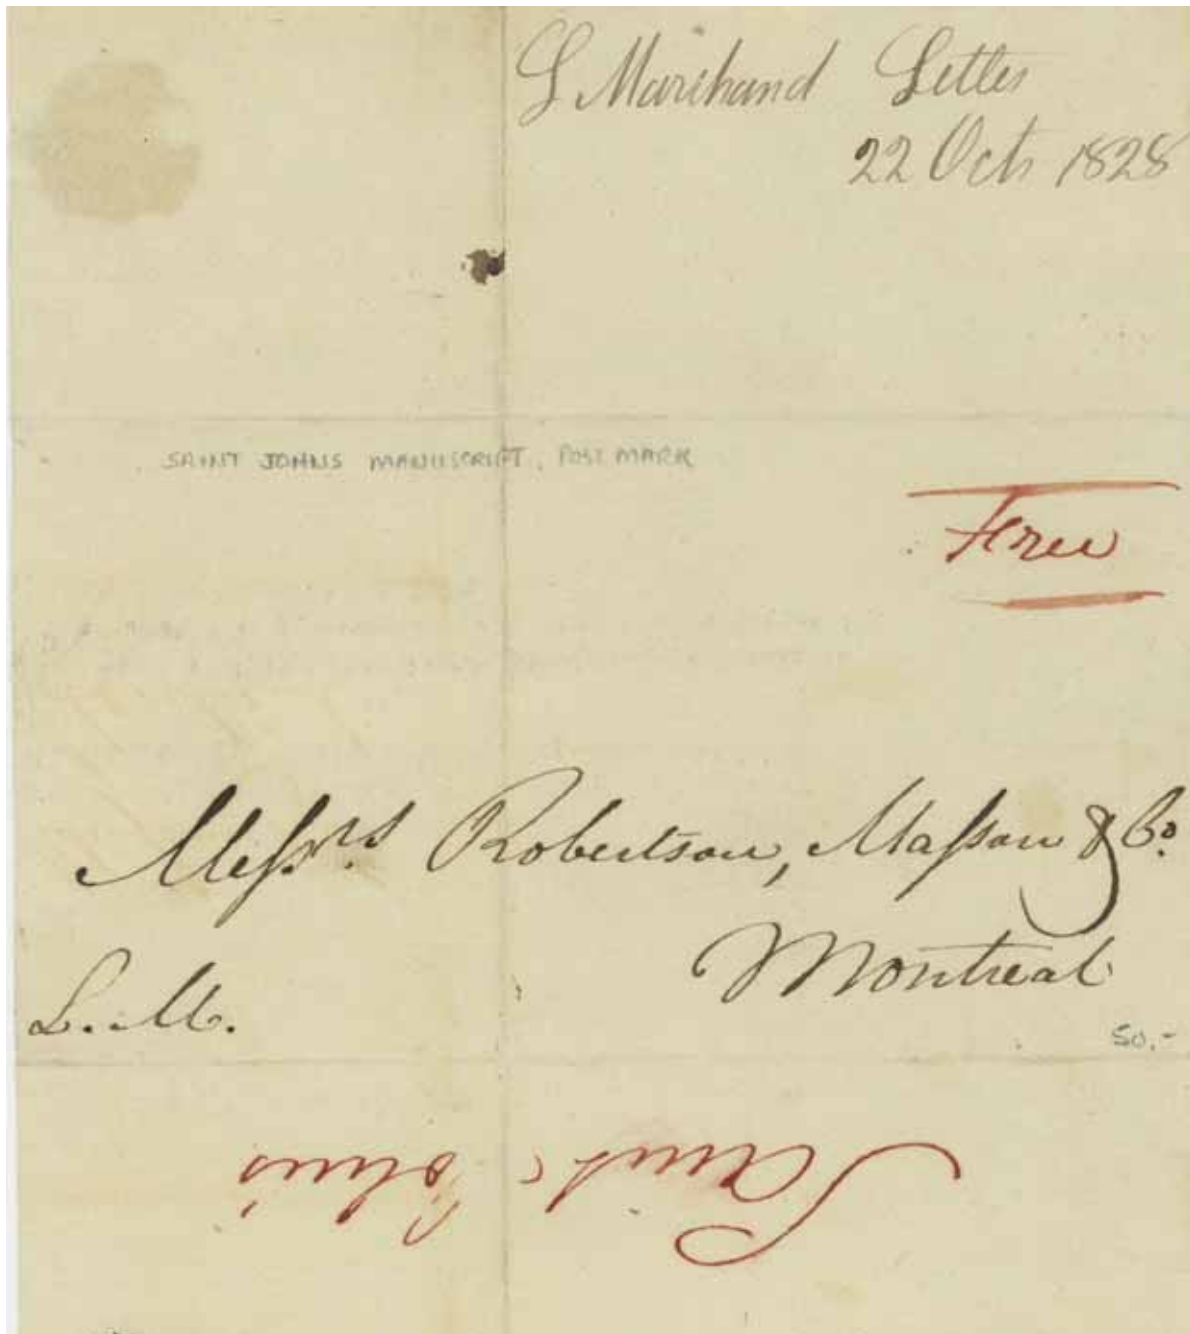 L Marchand Letter
22 Oct 1828
SAINT JOHNS MANUSCRIPT, POST MARK
Free
Messrs Robertson, Masson & Co.
Montreal
L. M.
50.-
Saint Johns